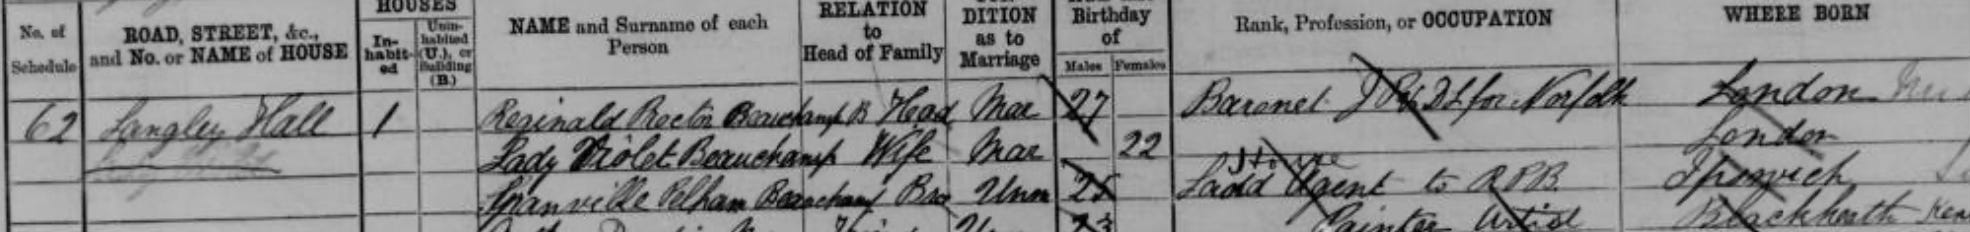 No. of Schedule ROAD, STREET, &c., and No. or NAME of HOUSE HOUSES In-habit-ed Unin-habited (U.), or Building (B.) NAME and Surname of each Person RELATION to Head of Family DITION as to Marriage Birthday of Males Females Rank, Profession, or OCCUPATION WHERE BORN
62 Langley Hall 1 Reginald Proctor Beauchamp B Head Mar 27 Baronet J P & D L for Norfolk London
Lady Violet Beauchamp Wife Mar 22 London
Granville Pelham Beauchamp Bro Unm 25 Land Agent to R P B Ipswich
Unm 23 Painter Artist Blackheath Ken